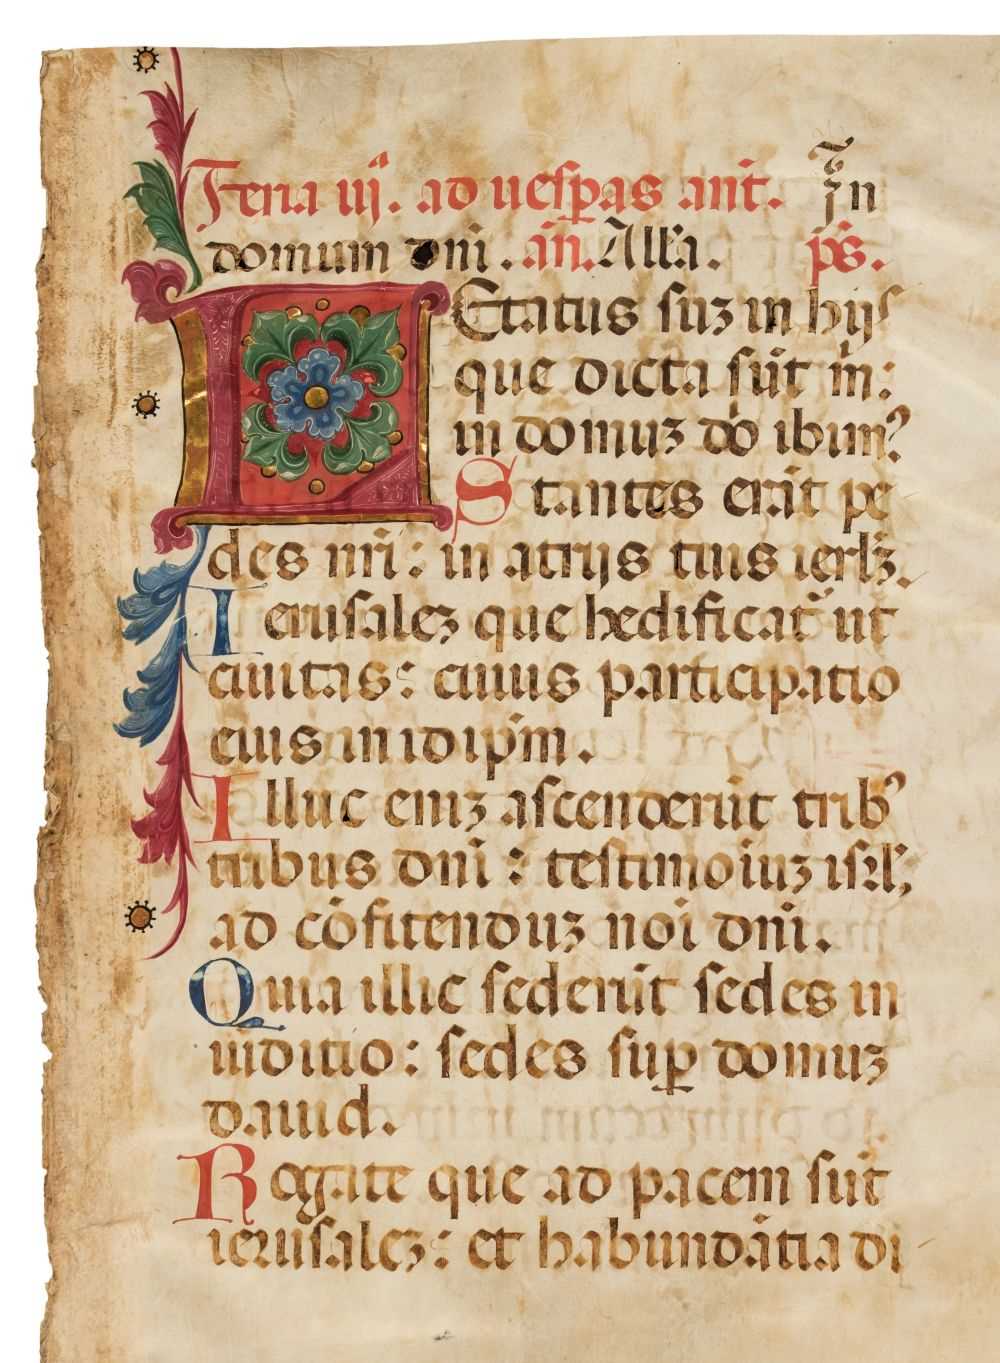 Feria iij. ad uesp̱as ant̄. In
domum dn̄i. an̄. All̄a. ps̄.
LEtatus suʒ in hijs
que dicta sūt m̄:
in domuʒ dō ibimꝰ
Stantes erāt pe
des nr̄i: in atrijs tuis ierl̄ʒ.
Ierusaleʒ que hedificat᷑ ut
ciuitas: cuius participatio
eius in idip̄m.
Illuc eniʒ ascenderūt tribꝰ
tribus dn̄i: testimoiuʒ isrl̄;
ad cōfitenduʒ noi dn̄i.
Quia illic sederūt sedes in
iuditio: sedes suꝑ domuʒ
dauid.
Rogate que ad pacem sūt
ierusaleʒ: et habundātia di